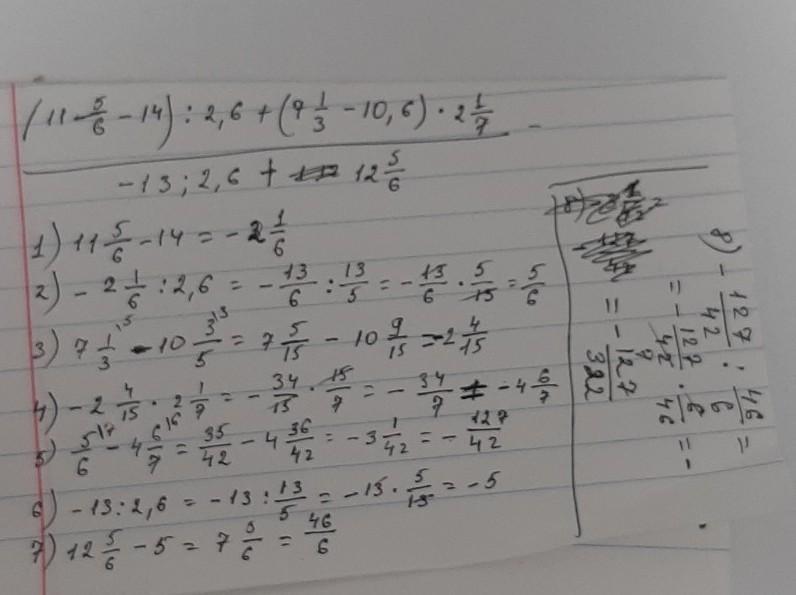 (11 5/6 - 14) : 2,6 + (7 1/3 - 10,6) · 2 1/7
-13 : 2,6 + 12 5/6
1) 11 5/6 - 14 = - 2 1/6
2) - 2 1/6 : 2,6 = - 13/6 : 13/5 = - 13/6 · 5/13 = 5/6
3) 7 1/3 - 10 3/5 = 7 5/15 - 10 9/15 = -2 4/15
4) - 2 4/15 · 2 1/7 = - 34/15 · 15/7 = - 34/7 = -4 6/7
5) 5/6 - 4 6/7 = 35/42 - 4 36/42 = -3 1/42 = - 127/42
6) -13 : 2,6 = -13 : 13/5 = -13 · 5/13 = -5
7) 12 5/6 - 5 = 7 5/6 = 46/6
8) - 127/42 : 46/6 =
= - 127/42 · 6/46 = -
= - 127/322